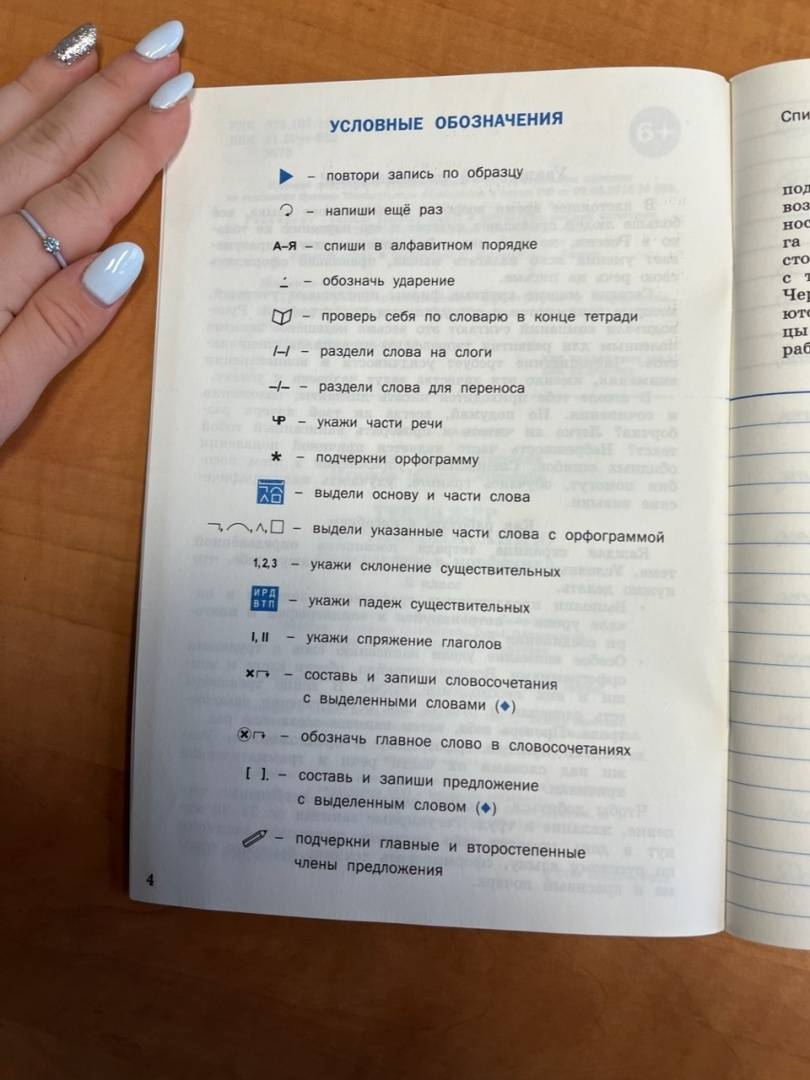 УСЛОВНЫЕ ОБОЗНАЧЕНИЯ
– повтори запись по образцу
– напиши ещё раз
А–Я – спиши в алфавитном порядке
– обозначь ударение
– проверь себя по словарю в конце тетради
/–/ – раздели слова на слоги
–/– – раздели слова для переноса
ЧР – укажи части речи
* – подчеркни орфограмму
– выдели основу и части слова
¬, ⌒, ^, □ – выдели указанные части слова с орфограммой
1, 2, 3 – укажи склонение существительных
ИРД
ВТП – укажи падеж существительных
I, II – укажи спряжение глаголов
× – составь и запиши словосочетания
с выделенными словами (◆)
⊗ – обозначь главное слово в словосочетаниях
[ ]. – составь и запиши предложение
с выделенным словом (◆)
– подчеркни главные и второстепенные
члены предложения
4
6+
Спи
под
воз
нос
га
сто
с т
Чер
ютс
цы
раб